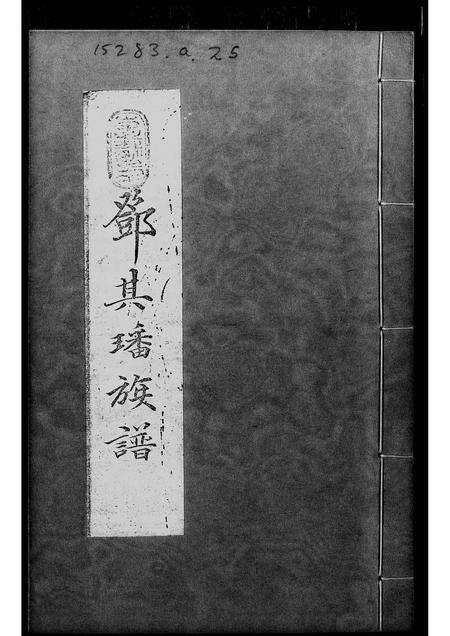 15283.a.25
鄧其璠族譜